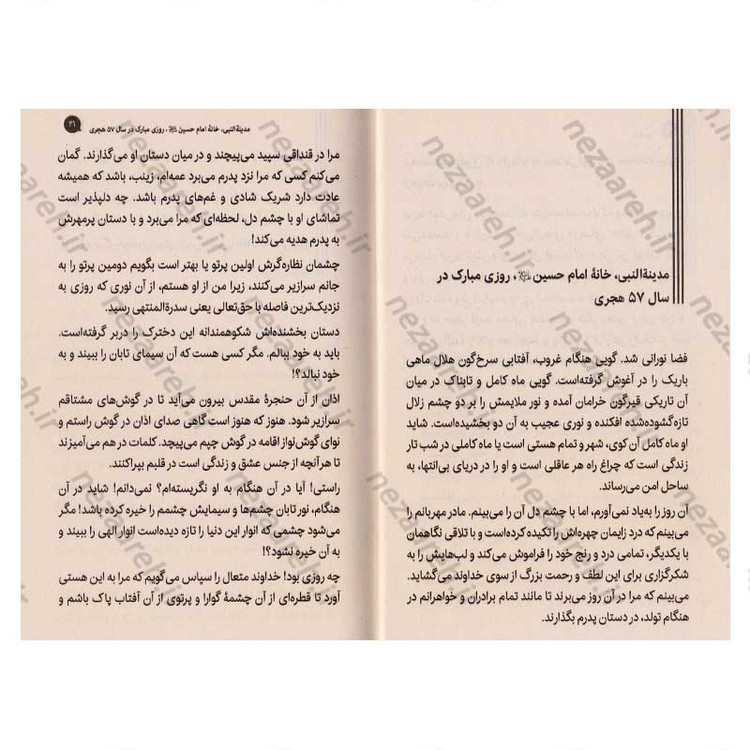 مدینةالنبی، خانهٔ امام حسین، روزی مبارک در
سال ۵۷ هجری
فضا نورانی شد. گویی هنگام غروب، آفتابی سرخ‌گون هلال ماهی
باریک را در آغوش گرفته‌است. گویی ماه کامل و تابناک در میان
آن تاریکی قیرگون خرامان آمده و نور ملایمش را بر دو چشم زلال
تازه‌گشوده‌شده افکنده و نوری عجیب به آن دو بخشیده‌است. شاید
او ماه کامل آن کوی، شهر و تمام هستی است یا ماه کاملی در شب تار
زندگی است که چراغ راه هر عاقلی است و او را در دریای بی‌انتها، به
ساحل امن می‌رساند.
آن روز را به‌یاد نمی‌آورم، اما با چشم دل آن را می‌بینم. مادر مهربانم را
می‌بینم که درد زایمان چهره‌اش را تکیده کرده‌است و با تلاقی نگاهمان
با یکدیگر، تمامی درد و رنج خود را فراموش می‌کند و لب‌هایش را به
شکرگزاری برای این لطف و رحمت بزرگ از سوی خداوند می‌گشاید.
می‌بینم که مرا در آن روز می‌برند تا مانند تمام برادران و خواهرانم در
هنگام تولد، در دستان پدرم بگذارند.
مدینةالنبی، خانهٔ امام حسین، روزی مبارک در سال ۵۷ هجری ۲۱
مرا در قنداقی سپید می‌پیچند و در میان دستان او می‌گذارند. گمان
می‌کنم کسی که مرا نزد پدرم می‌برد عمه‌ام، زینب، باشد که همیشه
عادت دارد شریک شادی و غم‌های پدرم باشد. چه دلپذیر است
تماشای او با چشم دل، لحظه‌ای که مرا می‌برد و با دستان پرمهرش
به پدرم هدیه می‌کند!
چشمان نظاره‌گرش اولین پرتو یا بهتر است بگویم دومین پرتو را به
جانم سرازیر می‌کنند، زیرا من از او هستم، از آن نوری که روزی به
نزدیک‌ترین فاصله با حق‌تعالی یعنی سدرةالمنتهی رسید.
دستان بخشنده‌اش شکوهمندانه این دخترک را دربر گرفته‌است.
باید به خود ببالم. مگر کسی هست که آن سیمای تابان را ببیند و به
خود نبالد؟!
اذان از آن حنجرهٔ مقدس بیرون می‌آید تا در گوش‌های مشتاقم
سرازیر شود. هنوز که هنوز است گاهی صدای اذان در گوش راستم و
نوای گوش‌نواز اقامه در گوش چپم می‌پیچد. کلمات در هم می‌آمیزند
تا هرآنچه از جنس عشق و زندگی است در قلبم بپراکنند.
راستی! آیا در آن هنگام به او نگریسته‌ام؟ نمی‌دانم! شاید در آن
هنگام، نور تابان چشم‌ها و سیمایش چشمم را خیره کرده باشد! مگر
می‌شود چشمی که انوار این دنیا را تازه دیده‌است انوار الهی را ببیند و
به آن خیره نشود؟!
چه روزی بود! خداوند متعال را سپاس می‌گویم که مرا به این هستی
آورد تا قطره‌ای از آن چشمهٔ گوارا و پرتوی از آن آفتاب پاک باشم و
nezaareh.ir